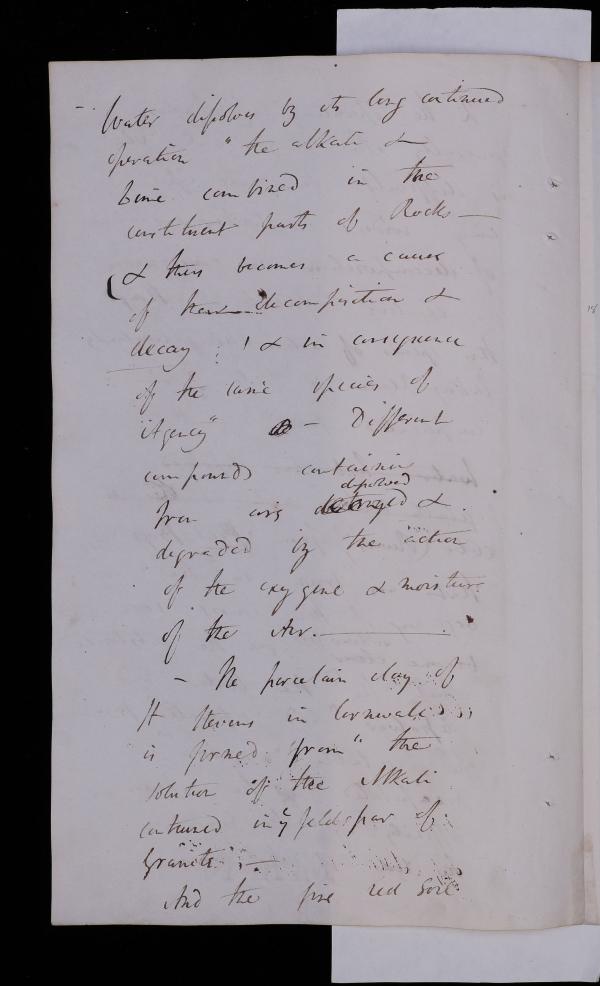 - Water dissolves by its long continued
operation " the alkali &
Lime combined in the
constituent parts of Rocks —
& thus becomes a cause
of their decomposition &
decay ; ! & in consequence
of the same species of
Agency" — Different
compounds containing
dissolved
Iron are destroyed &
degraded by the action
of the oxygene & moisture
of the Air. —
- The porcelain clay of
St Stevens in Cornwall
is formed from " the
solution of the Alkali
contained in ye feldspar of
Granite" ; —
And the fine red soil